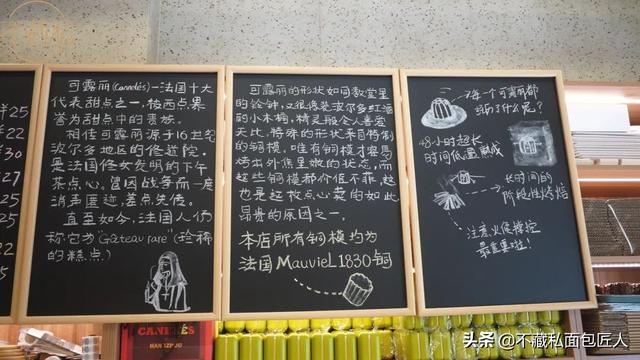 ¥25
¥22
¥30
¥27
¥25
¥25
可露丽(Cannelés)—法国十大
代表甜点之一,被西点界
誉为甜点中的贵族。
相传可露丽源于16世纪
波尔多地区的修道院,
是法国修女发明的下午
茶点心。曾因战争而一度
消声匿迹,差点失传。
直至如今,法国人仍
称它为"Gâteau rare"(珍稀
的糕点)
可露丽的形状如同教堂里
的铃钟,又很像装波尔多红酒
的小木桶,精灵般令人喜爱
天比,特殊的形状来自特制
的铜模。唯有铜模才容易
烤出外焦里嫩的状态,而
这些铜模都价值不菲,这
也是这枚点心卖的如此
昂贵的原因之一。
本店所有铜模均为
法国MauvieL1830铜
每一个可露丽都
经历了什么呢?
48小时超长
时间低温熟成
长时间的
阶段性烘焙
注意火侯掌控
最重要啦!
CANELÉS
头条 @不藏私面包匠人